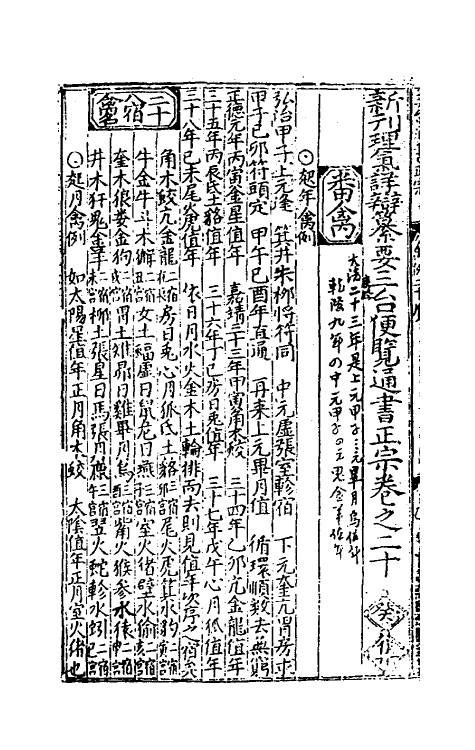 新刊理氣詳辯纂要三台便覽通書正宗卷之二十
番禽
大清二十三年是上元甲子
乾隆九年の中元甲子
⊙起年禽例
弘治甲子上元逢 箕井朱柳將符同 中元虛張室軫宿 下元奎亢胃房求
甲子己卯符頭定 甲午己酉年直通 再來上元畢月值 循環順數去無窮
正德元年丙寅金星值年 嘉靖三十三年甲寅角木蛟 三十四年乙卯亢金龍值年
三十五年丙辰氐土貉值年 三十六年丁巳房日兔值年 三十七年戊午心月狐值年
三十八年己未尾火虎值年 依日月水火金木土輪排而去則見值年次序之宿矣
二十八宿禽名
角木蛟亢金龍 房日兔心月狐氐土貉 尾火虎箕水豹
牛金牛斗木獬 女土蝠虛日鼠危月燕 室火猪壁水㺄
奎木狼婁金狗 胃土雉昴日雞畢月烏 觜火猴參水猿
井木犴鬼金羊 柳土獐星日馬張月鹿 翌火蛇軫水蚓
⊙起月禽例 如太陽星值年正月角木蛟 太陰值年正月室火猪也